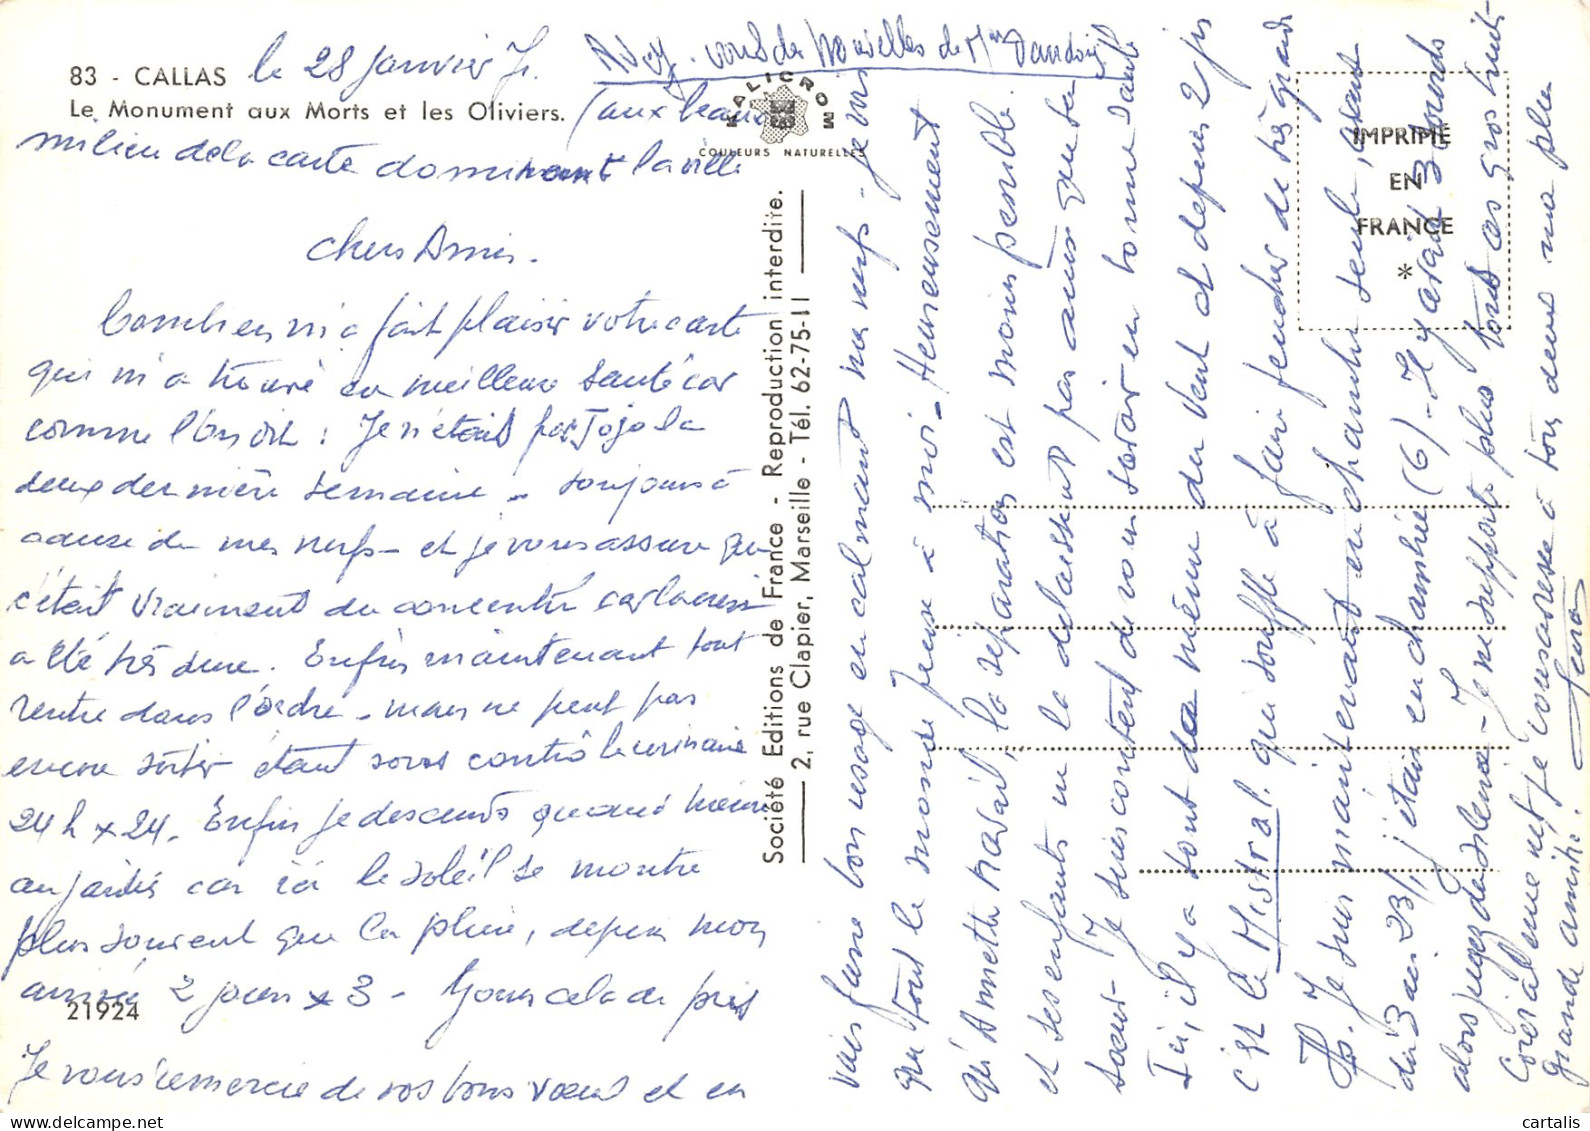 83 - CALLAS le 28 Janvier
Le Monument aux Morts et les Oliviers.
milieu de la carte dominant la ville
chers Amis.
Combien m'a fait plaisir votre carte
qui m'a trouvé en meilleure santé car
comme l'on dit : Je n'étais pas Jojo la
deux dernière semaine - toujours à
cause de mes nerfs - et je vous assure que
c'était vraiment du concentré car la crise
a été très dure. Enfin maintenant tout
rentre dans l'ordre - mais ne peut pas
encore sortir étant sous contrôle urinaire
24 h x 24. Enfin je descends quand même
au jardin car ici le soleil se montre
plus souvent que la pluie, depuis mon
arrivée 2 jours x 3 -
21924
Je vous remercie de vos bons vœux et en
MALICROM
COULEURS NATURELLES
Société Editions de France - Reproduction interdite.
2, rue Clapier, Marseille - Tél. 62-75-11
IMPRIMÉ
EN
FRANCE
*
vous de Nouvelles de
vais faire bon usage en calmant mes nerfs -
que tout le monde pense à moi - Heureusement
qu'Annette travail, la séparation est moins pénible.
et ses enfants ne la délaissent pas ainsi que sa
sœur - Je suis content de vous savoir en bonne santé
Ici, il y a tout de même du vent et depuis 2 jrs
c'est le Mistral. qui souffle à faire fendre de très grands
Ps. Je suis maintenant en chambre seule, avant
du 3 au 23/1 j'étais en chambrée (6) - Il y avait 3 sourds
alors jugez du silence - Je ne supporte plus tous ces gros bruits
Coréalement je vous adresse à tous deux ma plus
grande amitié.